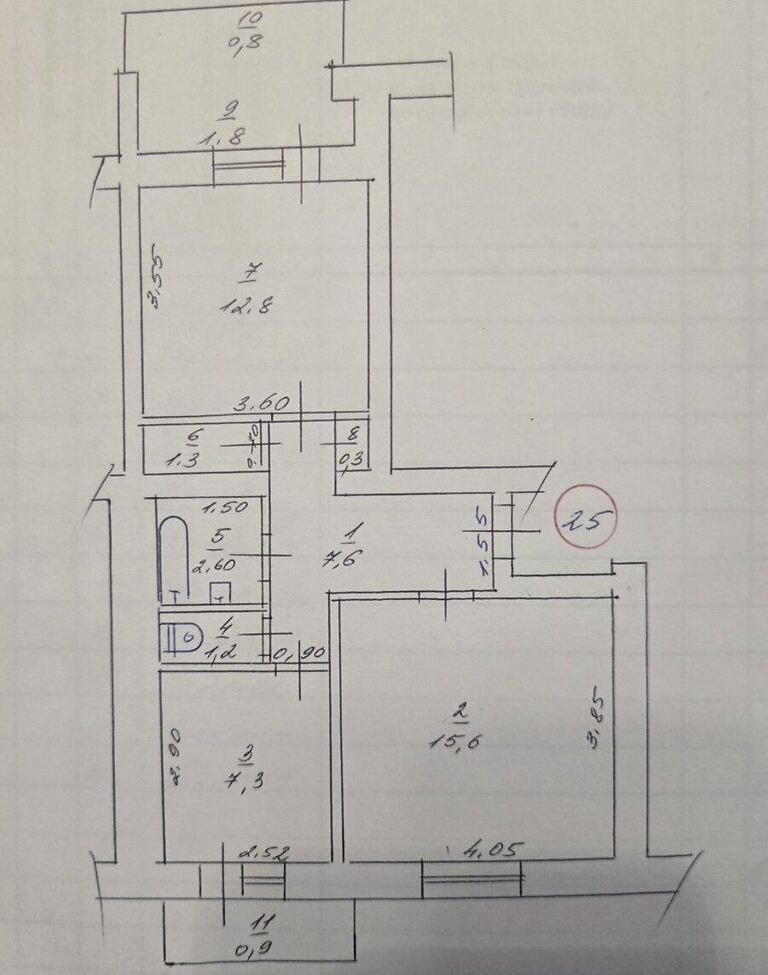 10
0,8
9
1.8
3.55
7
12.8
3.60
6
1.3
8
0,3
1.50
5
2.60
1
7,6
1.55
25
4
1,2
0,90
2
15,6
3.85
2.90
3
7,3
2.52
4.05
11
0,9